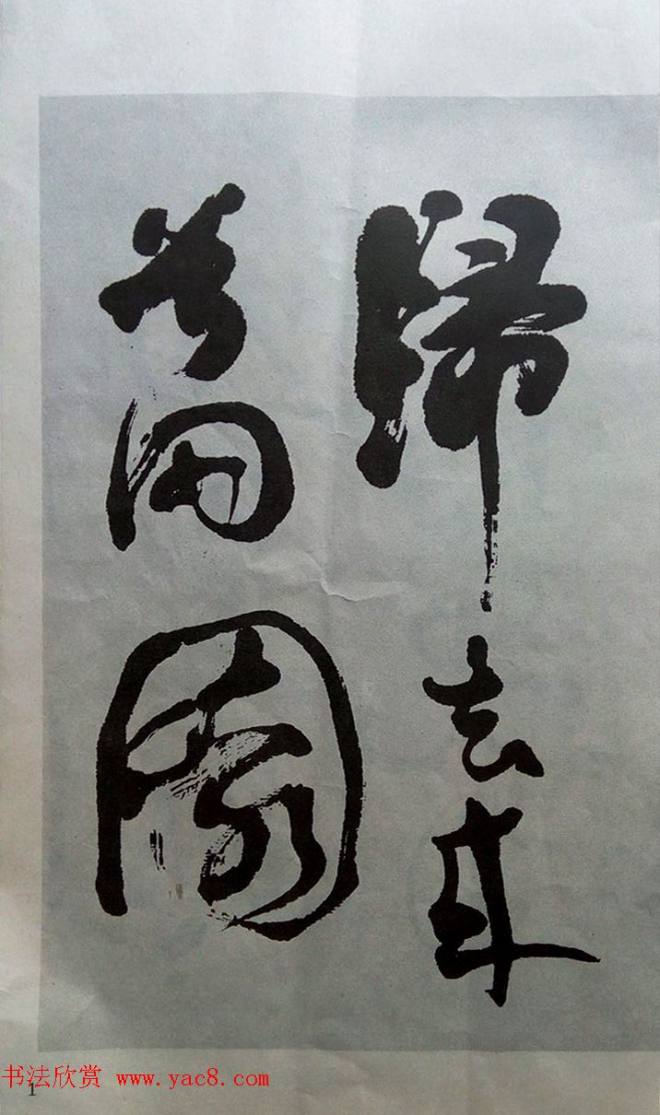 歸去来
兮田園
书法欣赏 www.yac8.com
1